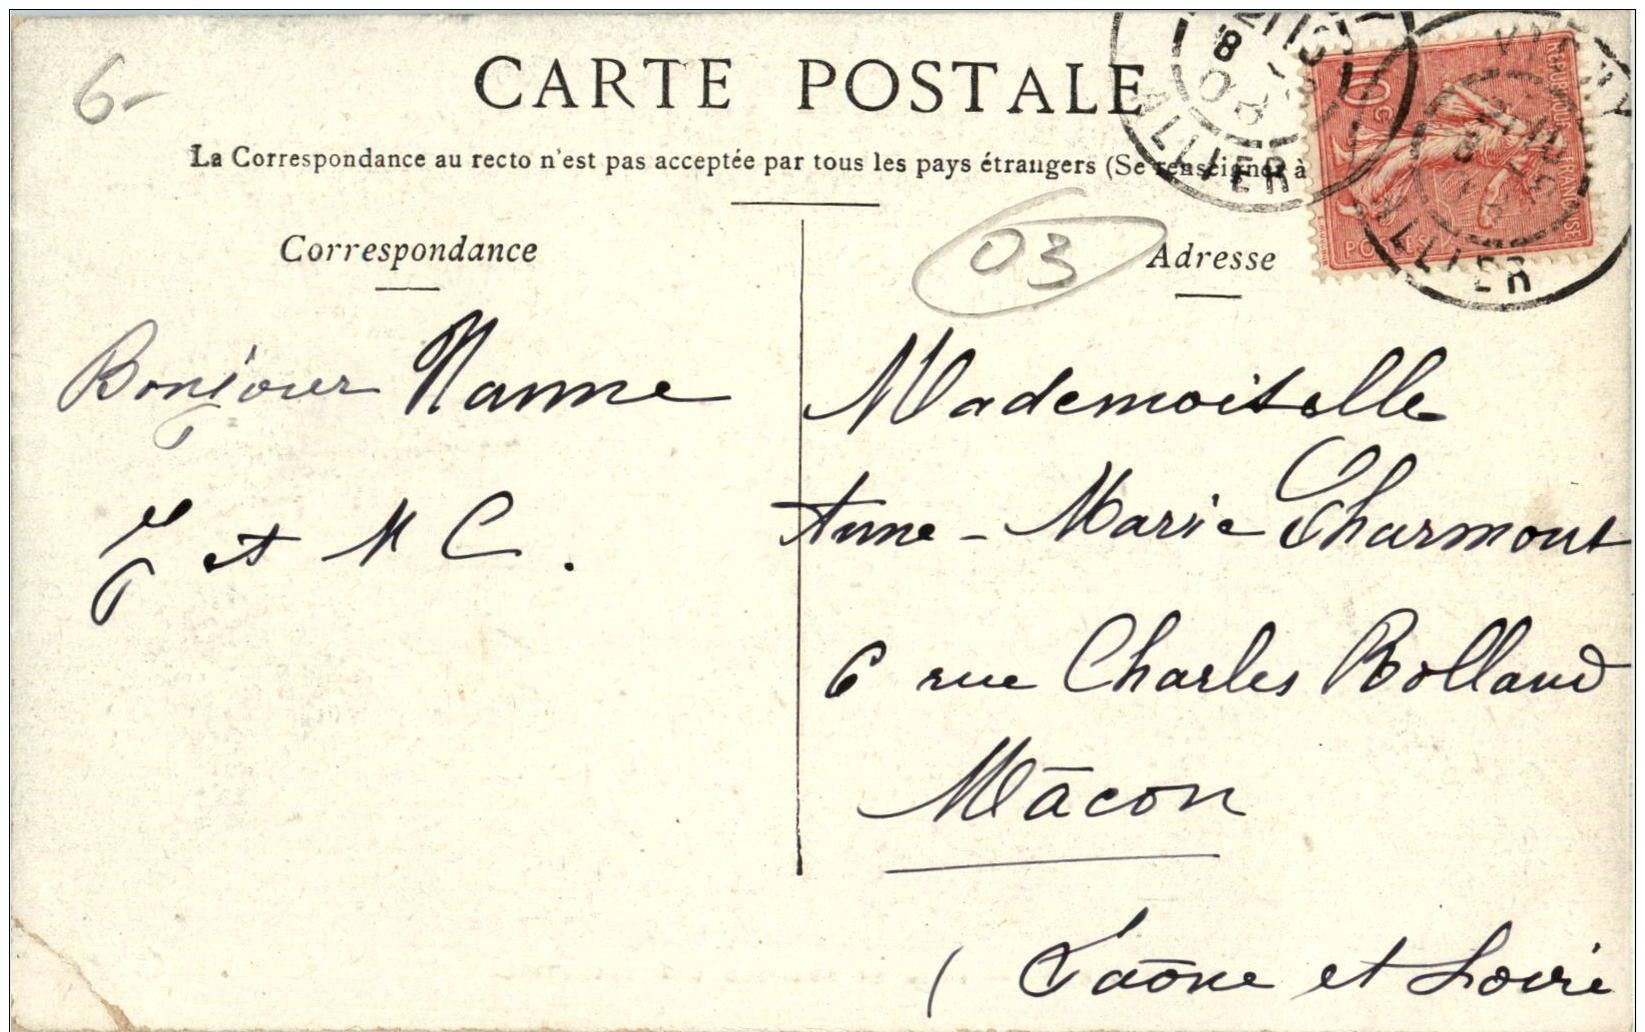 6-
CARTE POSTALE
La Correspondance au recto n'est pas acceptée par tous les pays étrangers (Se renseigner à
Correspondance
03
Adresse
10 c
REPUBLIQUE FRANCAISE
POSTES
VICHY
ALLIER
ALLIER
Bonjour Nanne
J et M C.
Mademoiselle
Anne-Marie Charmont
6 rue Charles Rolland
Mâcon
(Saône et Loire